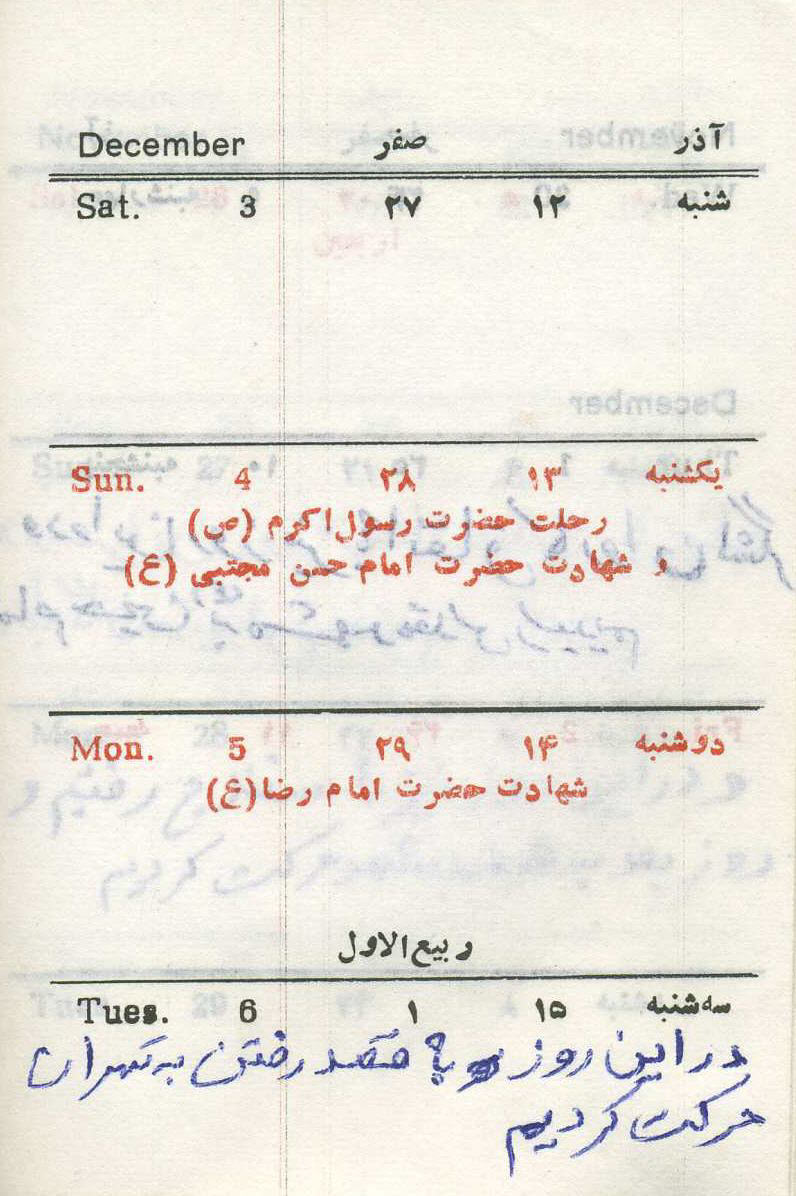 December صفر آذر
Sat. 3 ۲۷ ۱۲ شنبه
Sun. 4 ۲۸ ۱۳ یکشنبه
رحلت حضرت رسول اکرم (ص)
و شهادت حضرت امام حسن مجتبی (ع)
Mon. 5 ۲۹ ۱۴ دوشنبه
شهادت حضرت امام رضا (ع)
ربیع‌الاول
Tues. 6 ۱ ۱۵ سه‌شنبه
در این روز با قصد رفتن به تهران
حرکت کردیم